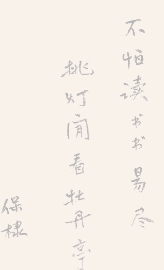 不怕读书书易尽
挑灯闲看牡丹亭
保棣